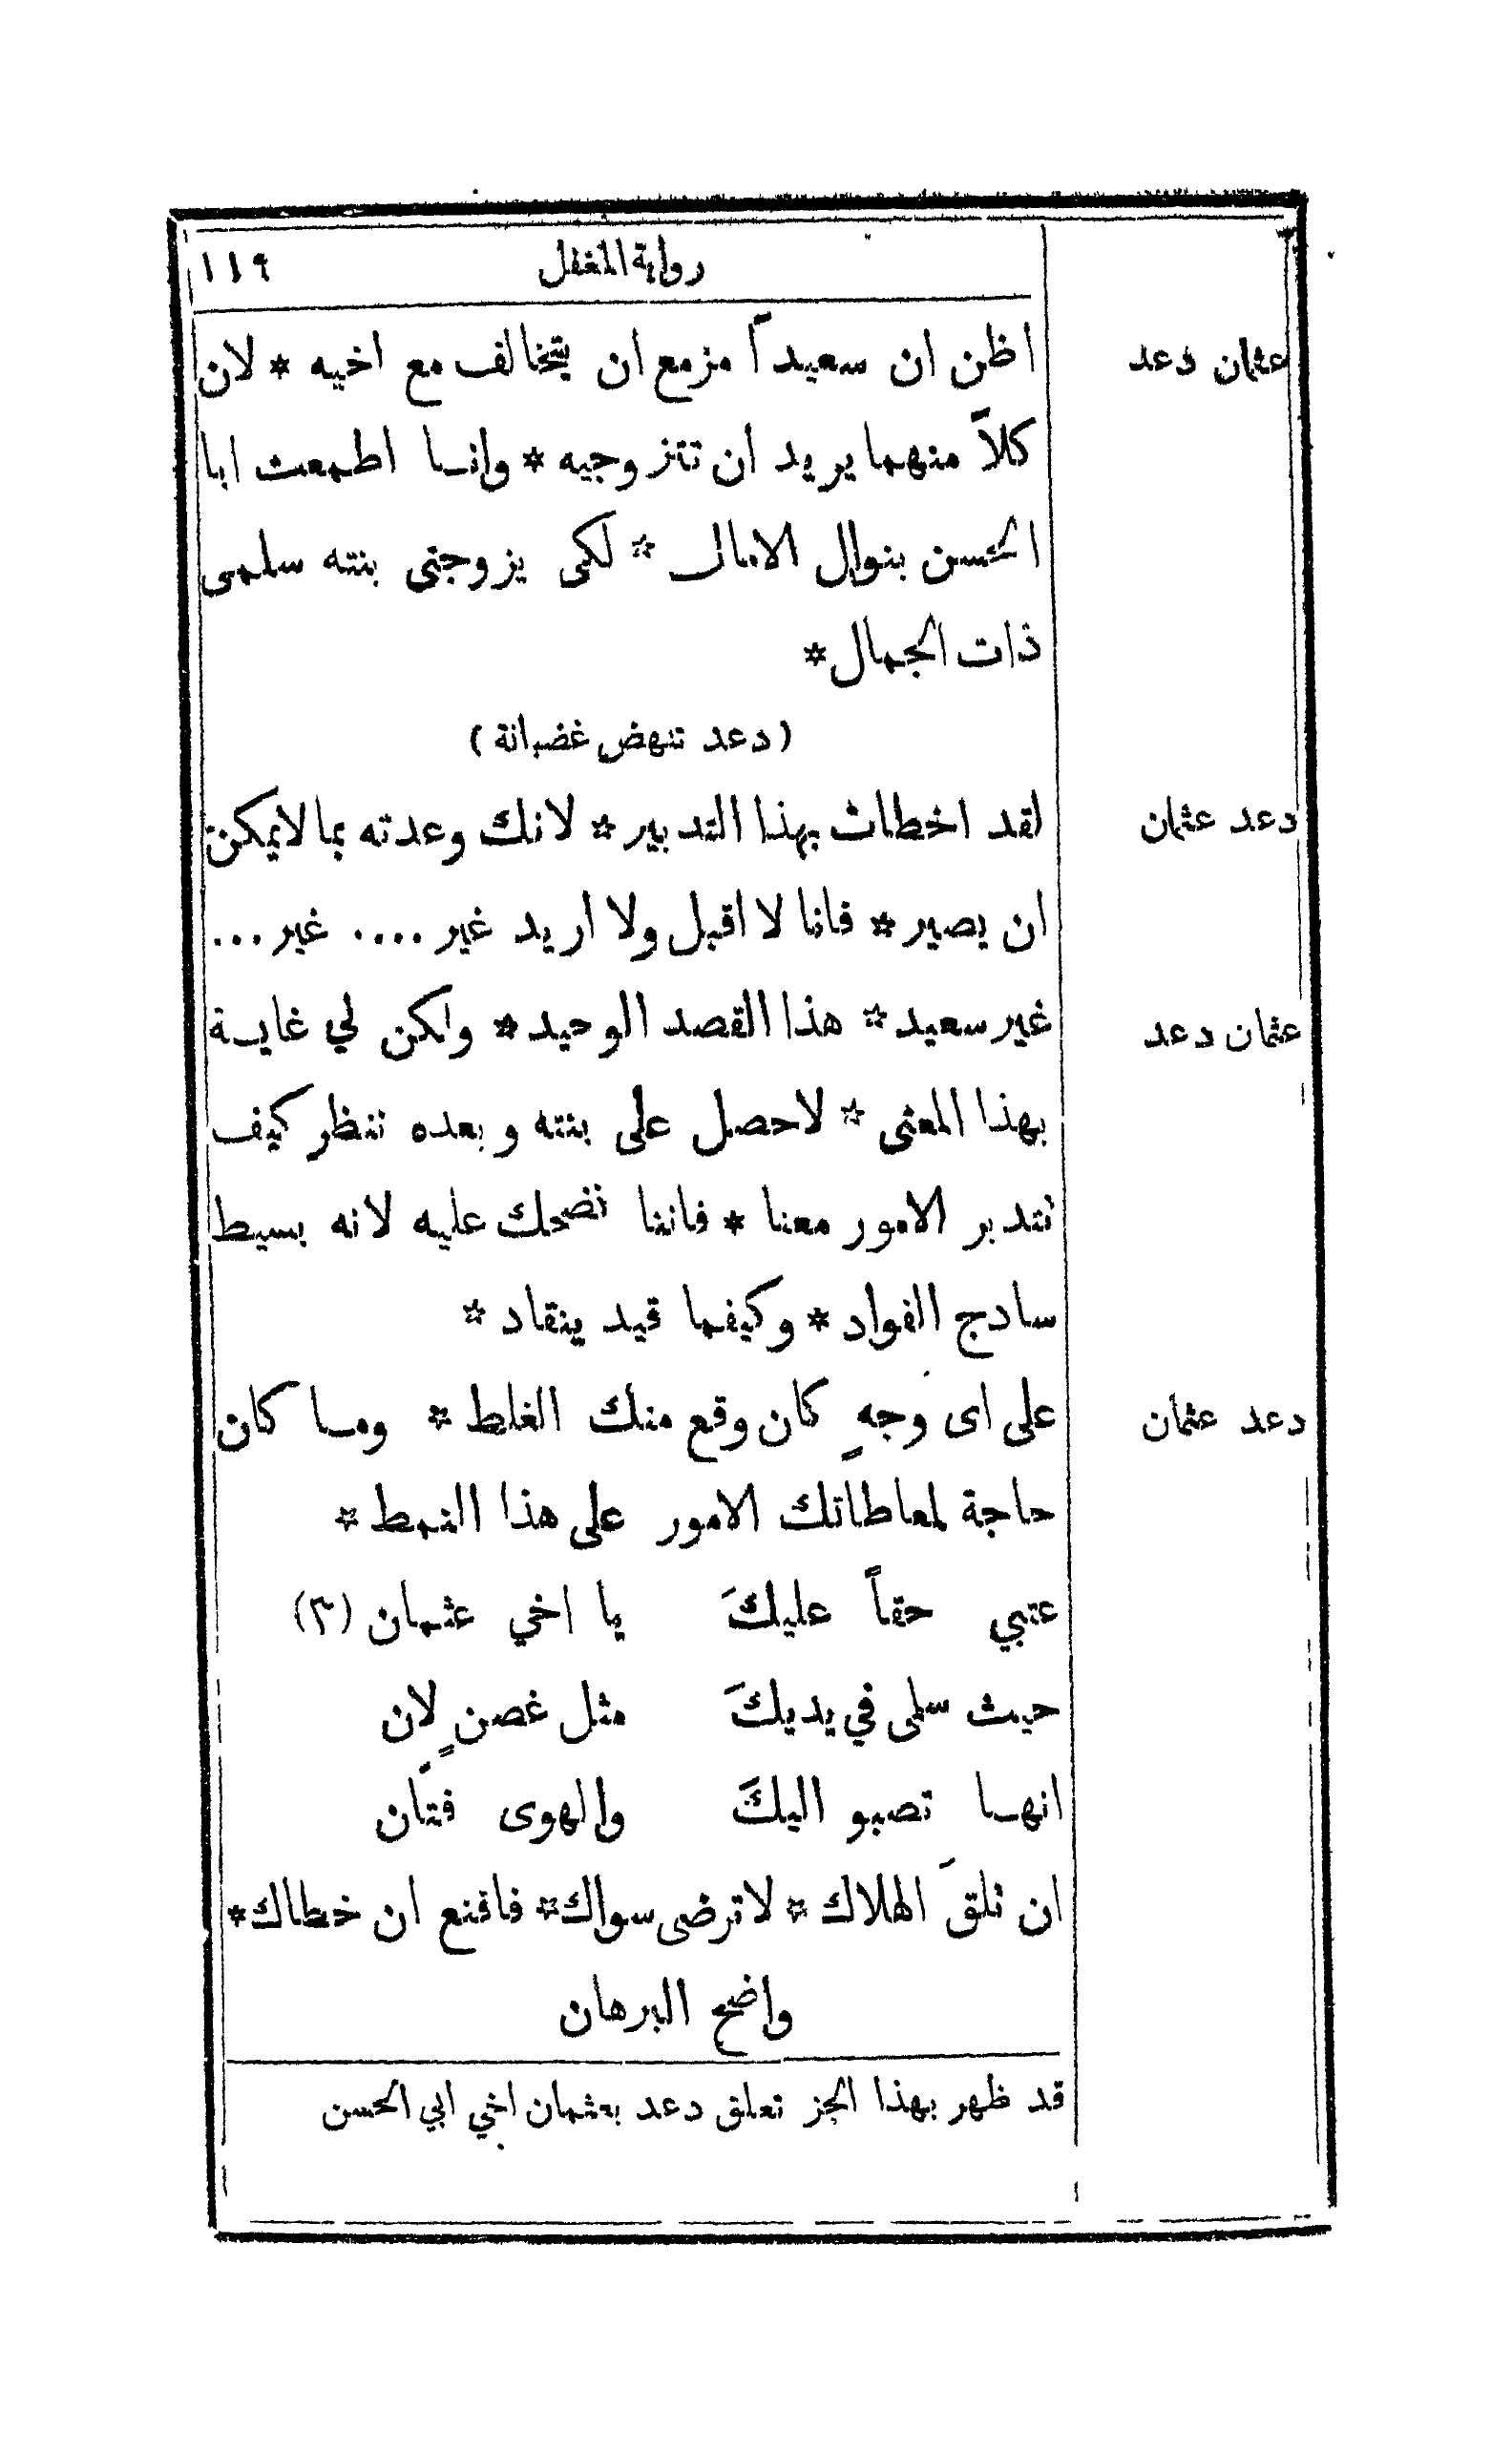 رواية المغفل ١١٩
عثمان دعد اظن ان سعيداً مزمع ان يتخالف مع اخيه * لان
كلاً منهما يريد ان تتزوجيه * وانــا اطمعت ابا
الحسن بنوال الامال * لكى يزوجنى بنته سلمى
ذات الجمال *
(دعد تنهض غضبانة)
دعد عثمان لقد اخطات بهذا التدبير * لانك وعدته بما لايمكن
ان يصير * فانا لا اقبل ولا اريد غير .... غير ...
عثمان دعد غير سعيد * هذا القصد الوحيد * ولكن لي غايـة
بهذا المعنى * لاحصل على بنته وبعده ننظر كيف
نتدبر الامور معنا * فاننا نضحك عليه لانه بسيط
سادج الفواد * وكيفما قيد ينقاد *
دعد عثمان على اى وجهٍ كان وقع منك الغلط * ومـا كان
حاجة لمعاطاتك الامور على هذا النمط *
عتبي حقاً عليكَ يا اخي عثمان (٣)
حيث سلمى في يديكَ مثل غصنٍ لان
انهـا تصبو اليكَ والهوى فتّان
ان تلقَ الهلاك * لا ترضى سواك * فاقنع ان خطاك *
واضح البرهان
قد ظهر بهذا الجز تعلق دعد بعثمان اخي ابي الحسن